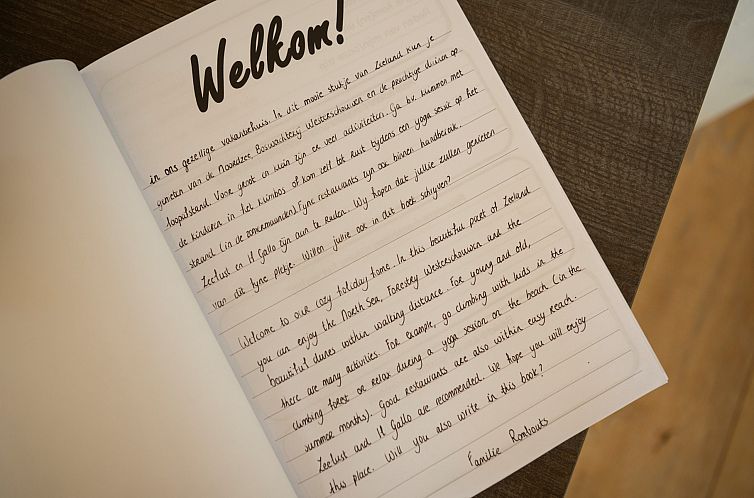 Welkom!
in ons gezellige vakantiehuis. In dit mooie stukje van Zeeland kun je
genieten van de Noordzee, Boswachterij Westerschouwen en de prachtige duinen op
loopafstand. Voor groot en klein zijn er veel activiteiten. Ga bv. klimmen met
de kinderen in het klimbos of kom zelf tot rust tijdens een yoga sessie op het
strand (in de zomermaanden). Fijne restaurants zijn ook binnen handbereik.
Zeelust en Il Gallo zijn aan te raden. Wij hopen dat jullie zullen genieten
van dit fijne plekje. Willen jullie ook in dit boek schrijven?
Welcome to our cozy holiday home. In this beautiful part of Zeeland
you can enjoy the North Sea, Forestry Westerschouwen and the
beautiful dunes within walking distance. For young and old,
there are many activities. For example, go climbing with kids in the
climbing forest or relax during a yoga session on the beach (in the
summer months). Good restaurants are also within easy reach.
Zeelust and Il Gallo are recommended. We hope you will enjoy
this place. Will you also write in this book?
Familie Rombouts